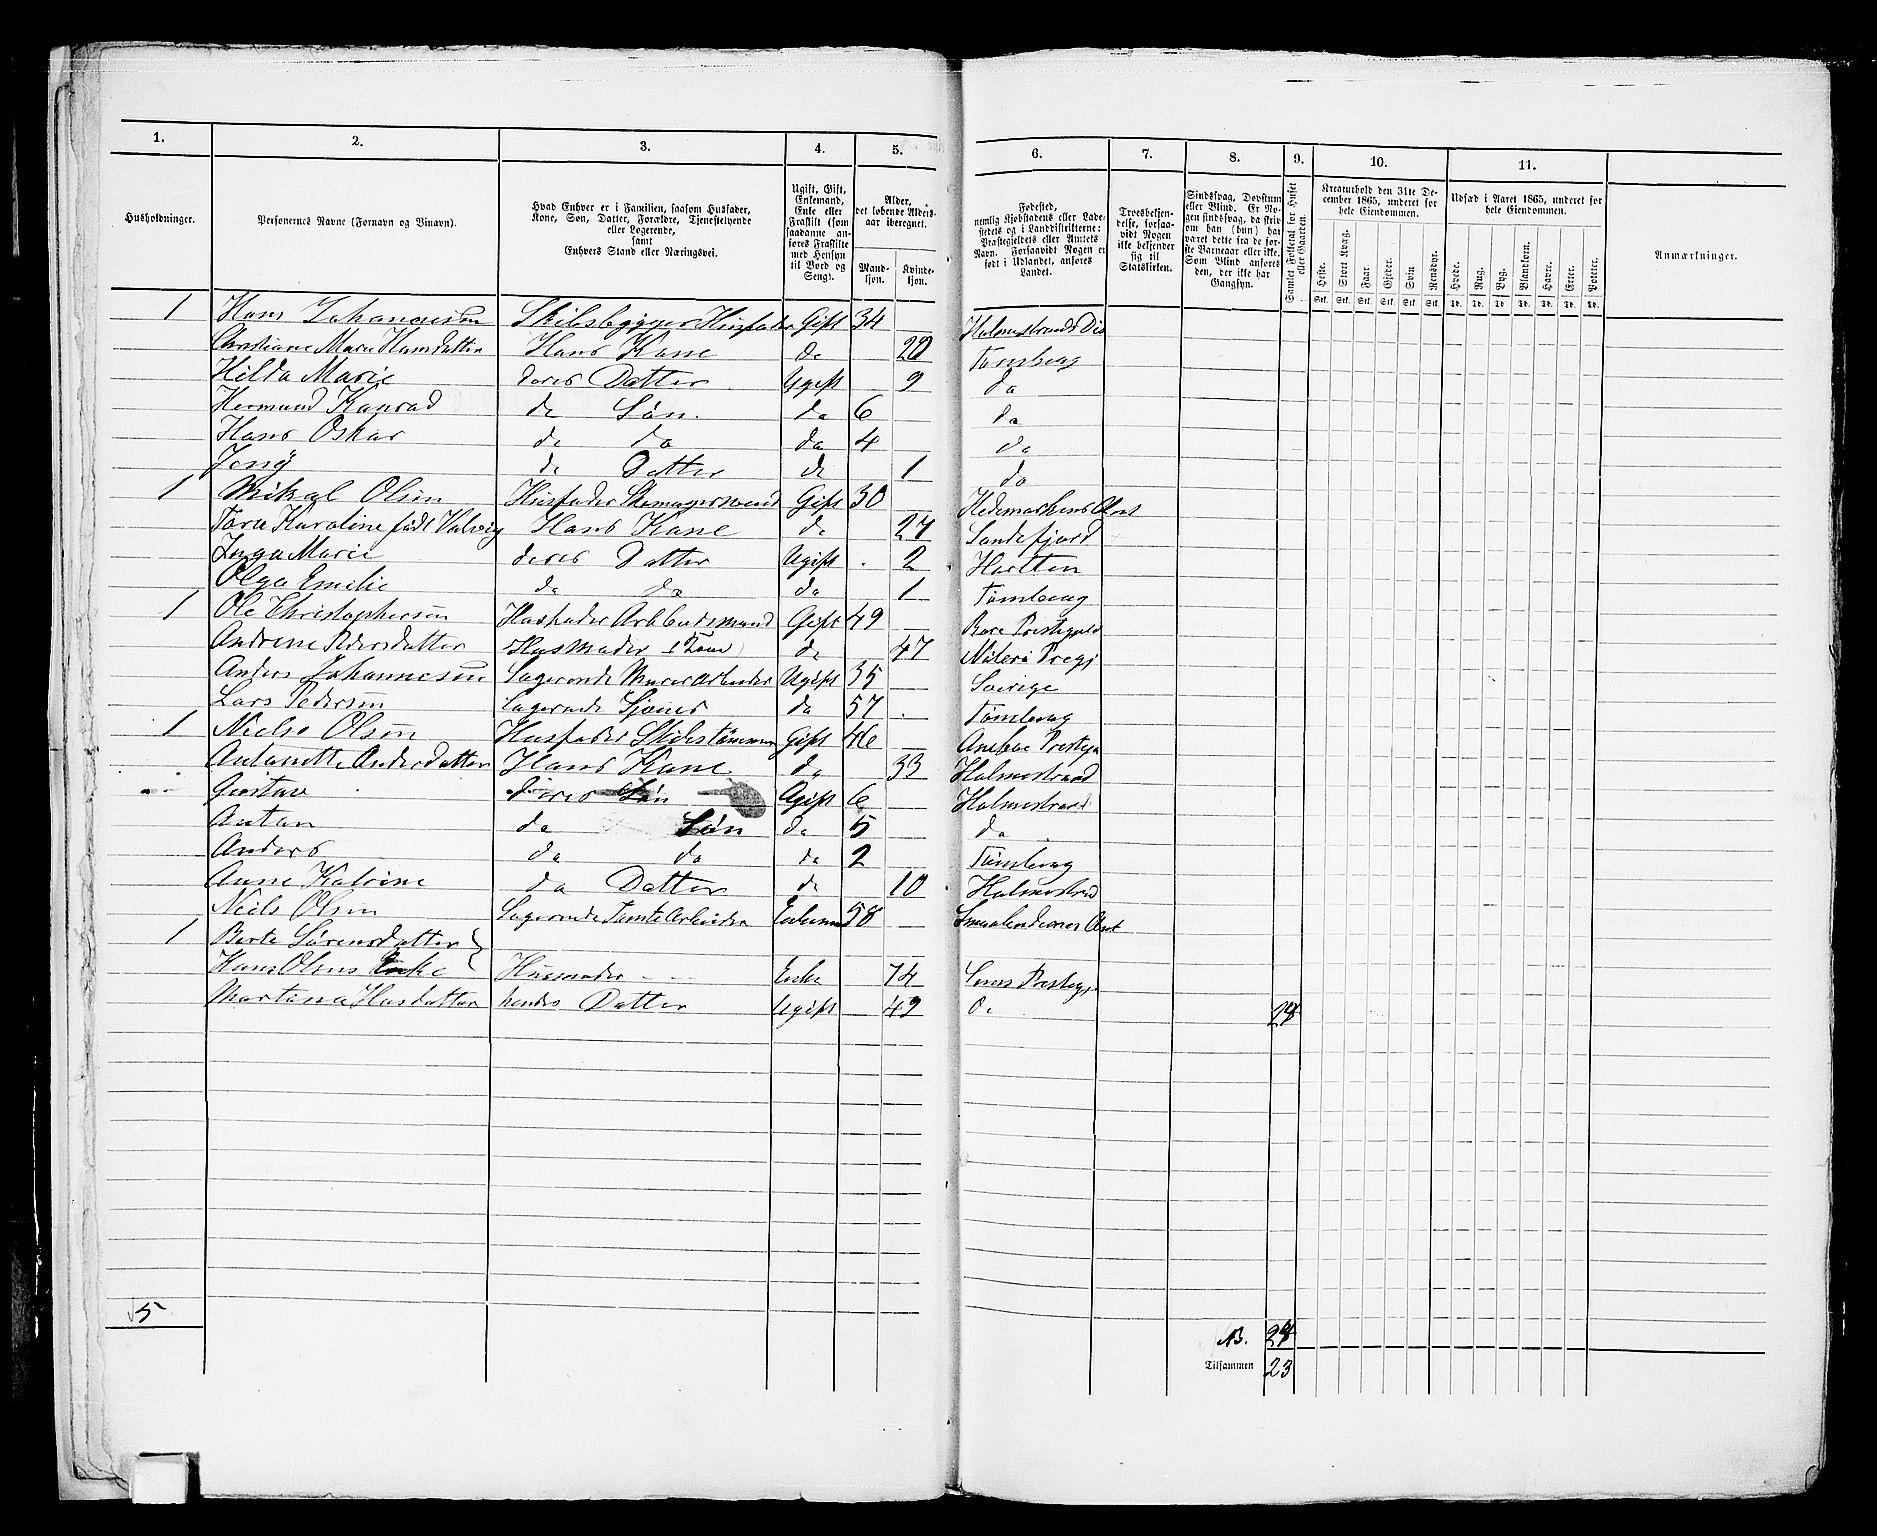 1. 2. 3. 4. 5. 6. 7. 8. 9. 10. 11.
Husholdninger.
Personernes Navne (Fornavn og Binavn).
Hvad Enhver er i Familien, saasom Husfader,
Kone, Søn, Datter, Forældre, Tjenestetyende
eller Logerende,
samt
Enhvers Stand eller Næringsvei.
Ugift, Gift,
Enkemand,
Enke eller
Fraskilt (som
saadanne an-
føres Fraskilte
med Hensyn
til Bord og
Seng).
Alder,
det løbende Alders-
aar iberegnet.
Mand-
kjøn.
Kvinde-
kjøn.
Fødested,
nemlig Kjøbstadens eller Lade-
stedets og i Landdistrikterne:
Præstegjeldets eller Amtets
Navn. Forsaavidt Nogen er
født i Udlandet, anføres
Landet.
Troesbekjen-
delse, forsaa-
vidt Nogen
ikke bekjender
sig til
Statskirken.
Sindssvag, Døvstum
eller Blind. Er No-
gen sindssvag, da skriv
om han (hun) har
været dette fra de før-
ste Barneaar eller ikke.
Som Blind anføres
den, der ikke har
Gangsyn.
Samlet Folketal for Huset
eller Gaarden.
Kreaturhold den 31te De-
cember 1865, underet for
hele Eiendommen.
Heste. Stort Kvæg. Faar. Gjeder. Svin Rensdyr.
Stk. Stk. Stk. Stk. Stk. Stk.
Udsæd i Aaret 1865, underet for
hele Eiendommen.
Hvede. Rug. Byg. Blandkorn. Havre. Erter. Poteter.
Td. Td. Td. Td. Td. Td. Td.
Anmærkninger.
1 Hans Johannesen Skibsbygger Husfader Gift 34 Holmestrands Dis
Christiane Marie Hansdatter Hans Kane do 29 Tønsberg
Hilda Marie deres Datter Ugift 9 do
Hermund Konrad do Søn. do 6 do
Hans Oskar do do do 4 do
Jeny do Datter do 1 do
1 Mikal Olsen Husfader Skomagersvend Gift 30 Hedemarkens Amt
Tara Karoline født Valvig Hans Kane do 27 Sandefjord
Inga Marie deres Datter Ugift 2 Hortten
Olga Emelie do do do 1 Tønsberg
1 Ole Christophersen Husfader Arbeidsmand Gift 49
Andrene Pedersdatter Husmoder (Kone) do 47
Anders Johannesen Logerende Murer Arbeider Ugift 35 Sverige
Lars Pedersen Logerende do 57 Tønsberg
1 Niels Olsen Husfader Skibstømmer Gift 46
Antonette Andersdatter Hans Kane do 33 Holmestrand
Gustav deres Søn Ugift 6 Holmestrand
Antan do Søn do 5 do
Anders do do do 2 Tønsberg
Anne Katrine do Datter do 10 Holmestrand
Niels Olsen Logerende Tomte Arbeider Enkem 58 Smaalendenes Amt
1 Berte Sørensdatter
Hans Olsens Enke Husmoder Enke 74
Martana Hansdatter hendes Datter Ugift 49 do
5
NB.
Tilsammen 23